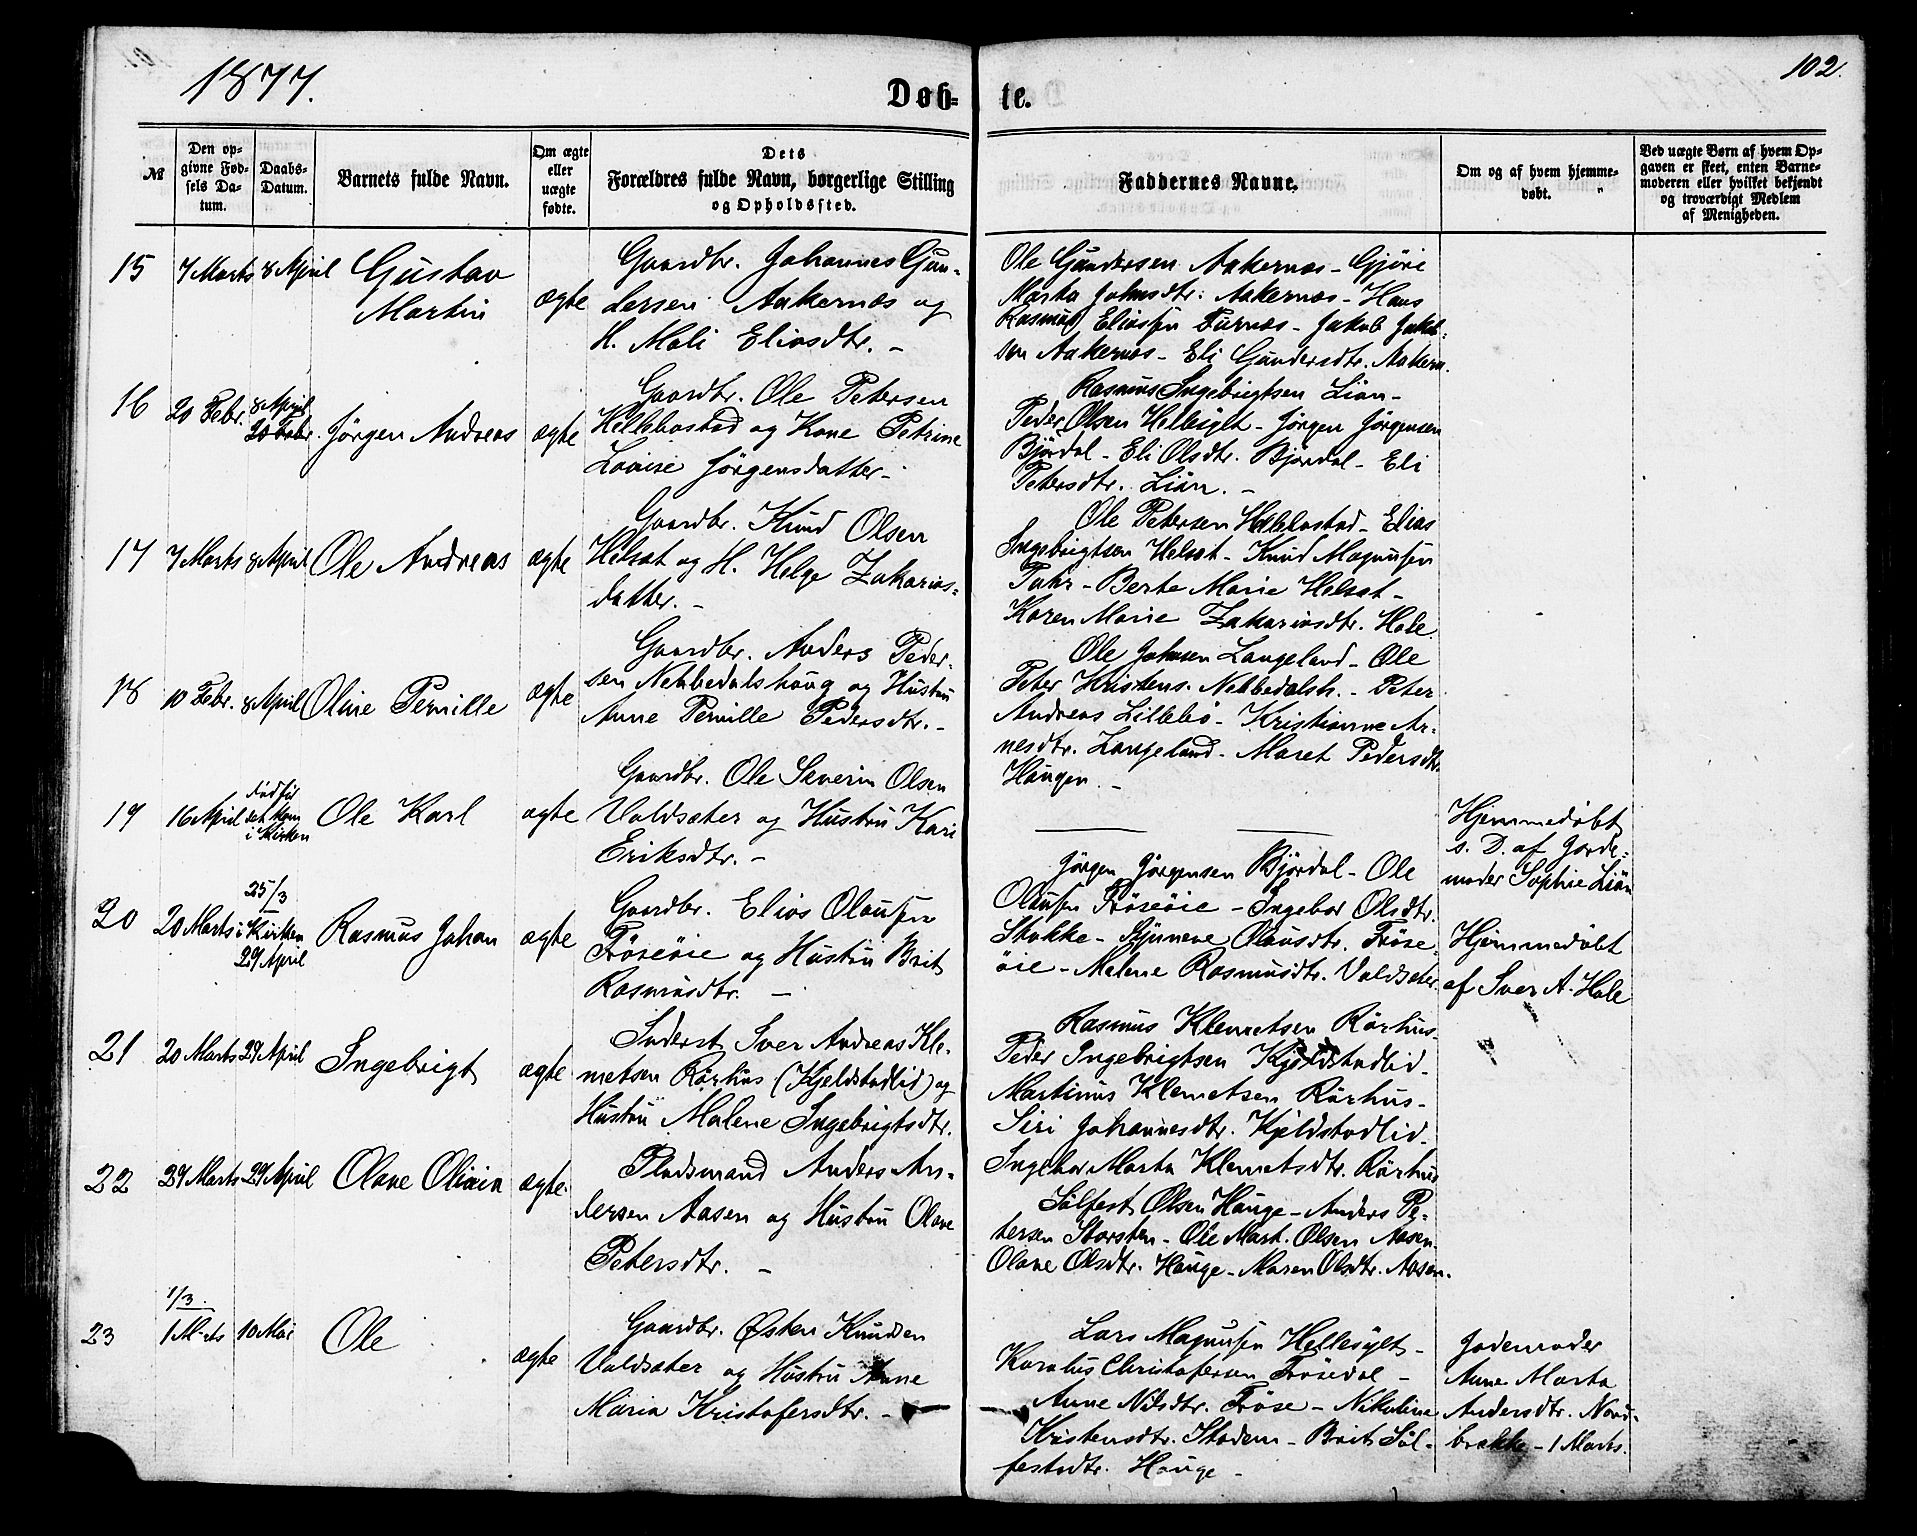 1877.
102.
Døb-
te.
№
Den op-
givne Fød-
sels Da-
tum.
Daabs-
Datum.
Barnets fulde Navn.
Om ægte
eller
uægte
fødte.
Dets
Forældres fulde Navn, borgerlige Stilling
og Opholdssted.
Faddernes Navne.
Om og af hvem hjemme-
døbt.
Ved uægte Børn af hvem Op-
gaven er skeet, enten Barne-
moderen eller hvilket bekjendt
og troværdigt Medlem
af Menigheden.
15
7 Marts
8 April
Gustav
Martin
ægte
Gaardbr. Johannes Gun-
dersen Aakernæs og
H. Mali Eliasdtr. -
Ole Gundersen Aakernæs - Gjøri
Marta Johnsdtr: Aakernæs - Hans
Rasmus Eliassen Furnæs - Jakob Jakob-
sen Aakernæs - Eli Gundersdtr. Aakern.
16
20 Febr.
8 April
20 Febr.
Jørgen Andreas
ægte
Gaardbr. Ole Petersen
Hellebostad og Kone Petrine
Lovise Jørgensdatter -
Rasmus Ingebrigtsen Liøn -
Peder Olsen Hellesylt - Jørgen Jørgensen
Bjørdal - Eli Olsdtr. Bjørdal - Eli
Petersdtr. Liøn. -
17
7 Marts
8 April
Ole Andreas
ægte
Gaardbr. Knud Olsen
Helsæt og H. Helge Zakarias-
datter. -
Ole Petersen Hellebostad - Elias
Ingebrigtsen Helsæt - Knud Magnussen
Tahr - Berte Marie Helsæt -
Karen Marie Zakariasdtr. Hole
18
10 Febr.
8 April
Oline Pernille
ægte
Gaardbr. Anders Peder-
sen Nebbedalshaug og Hustru
Anne Pernille Pedersdtr. -
Ole Johnsen Langeland - Ole
Peter Kristens. Nebbedalsh. - Peter
Andreas Lillebø - Kristianne Ar-
nesdtr. Langeland - Maret Pedersdtr.
Haugen -
19
16 April
født før
det kom
i Kirken
Ole Karl
ægte
Gaardbr. Ole Severin Olsen
Valdsæter og Hustru Kari
Eriksdtr. -
Hjemmedøbt
s. D. af Jorde-
moder Sophie Liøn
20
20 Marts
25/3
i Kirken
29 April
Rasmus Johan
ægte
Gaardbr. Elias Olaussen
Frøseøie og Hustru Brit
Rasmusdtr. -
Jørgen Jørgensen Bjørdal - Ole
Olaussen Frøseøie - Ingebor Olsdtr.
Stokke - Synneve Olausdtr. Frøse-
øie - Malene Rasmusdtr. Valdsæter
Hjemmedøbt
af Iver A. Hole
21
20 Marts
29 April
Ingebrigt
ægte
Inderst Iver Andreas Kle-
metsen Rørhus (Kjeldstadlid) og
Hustru Malene Ingebrigtsdtr.
Rasmus Klemetsen Rørhus -
Peder Ingebrigtsen Kjeldstadlid -
Martinus Klemetsen Rørhus -
Siri Johannesdtr. Kjeldstadlid -
Ingebor Marta Klemetsdtr. Rørhus
22
29 Marts
29 April
Olave
ægte.
Pladsmand Anders An-
dersen Aasen og Hustru Olave
Petersdtr. -
Sølfest Olsen Hauge - Anders Pe-
tersen Storsten - Ole Mart. Olsen Aasen -
Olave Olsdtr. Hauge - Maren Olsdtr. Aasen.
23
1/3.
1 Marts
10 Mai
Ole
ægte
Gaardbr. Østen Knudsen
Valdsæter og Hustru Anne
Maria Kristofersdtr. -
Lars Magnussen Hellesylt -
Karolus Christofersen Frøsedal -
Anne Nilsdtr. Frøse - Nikoline
Kristensdtr. Stadem - Brit Søl-
festsdtr. Hauge -
Jordemoder
Anne Marta
Andersdtr. Nord-
brække - 1 Marts.